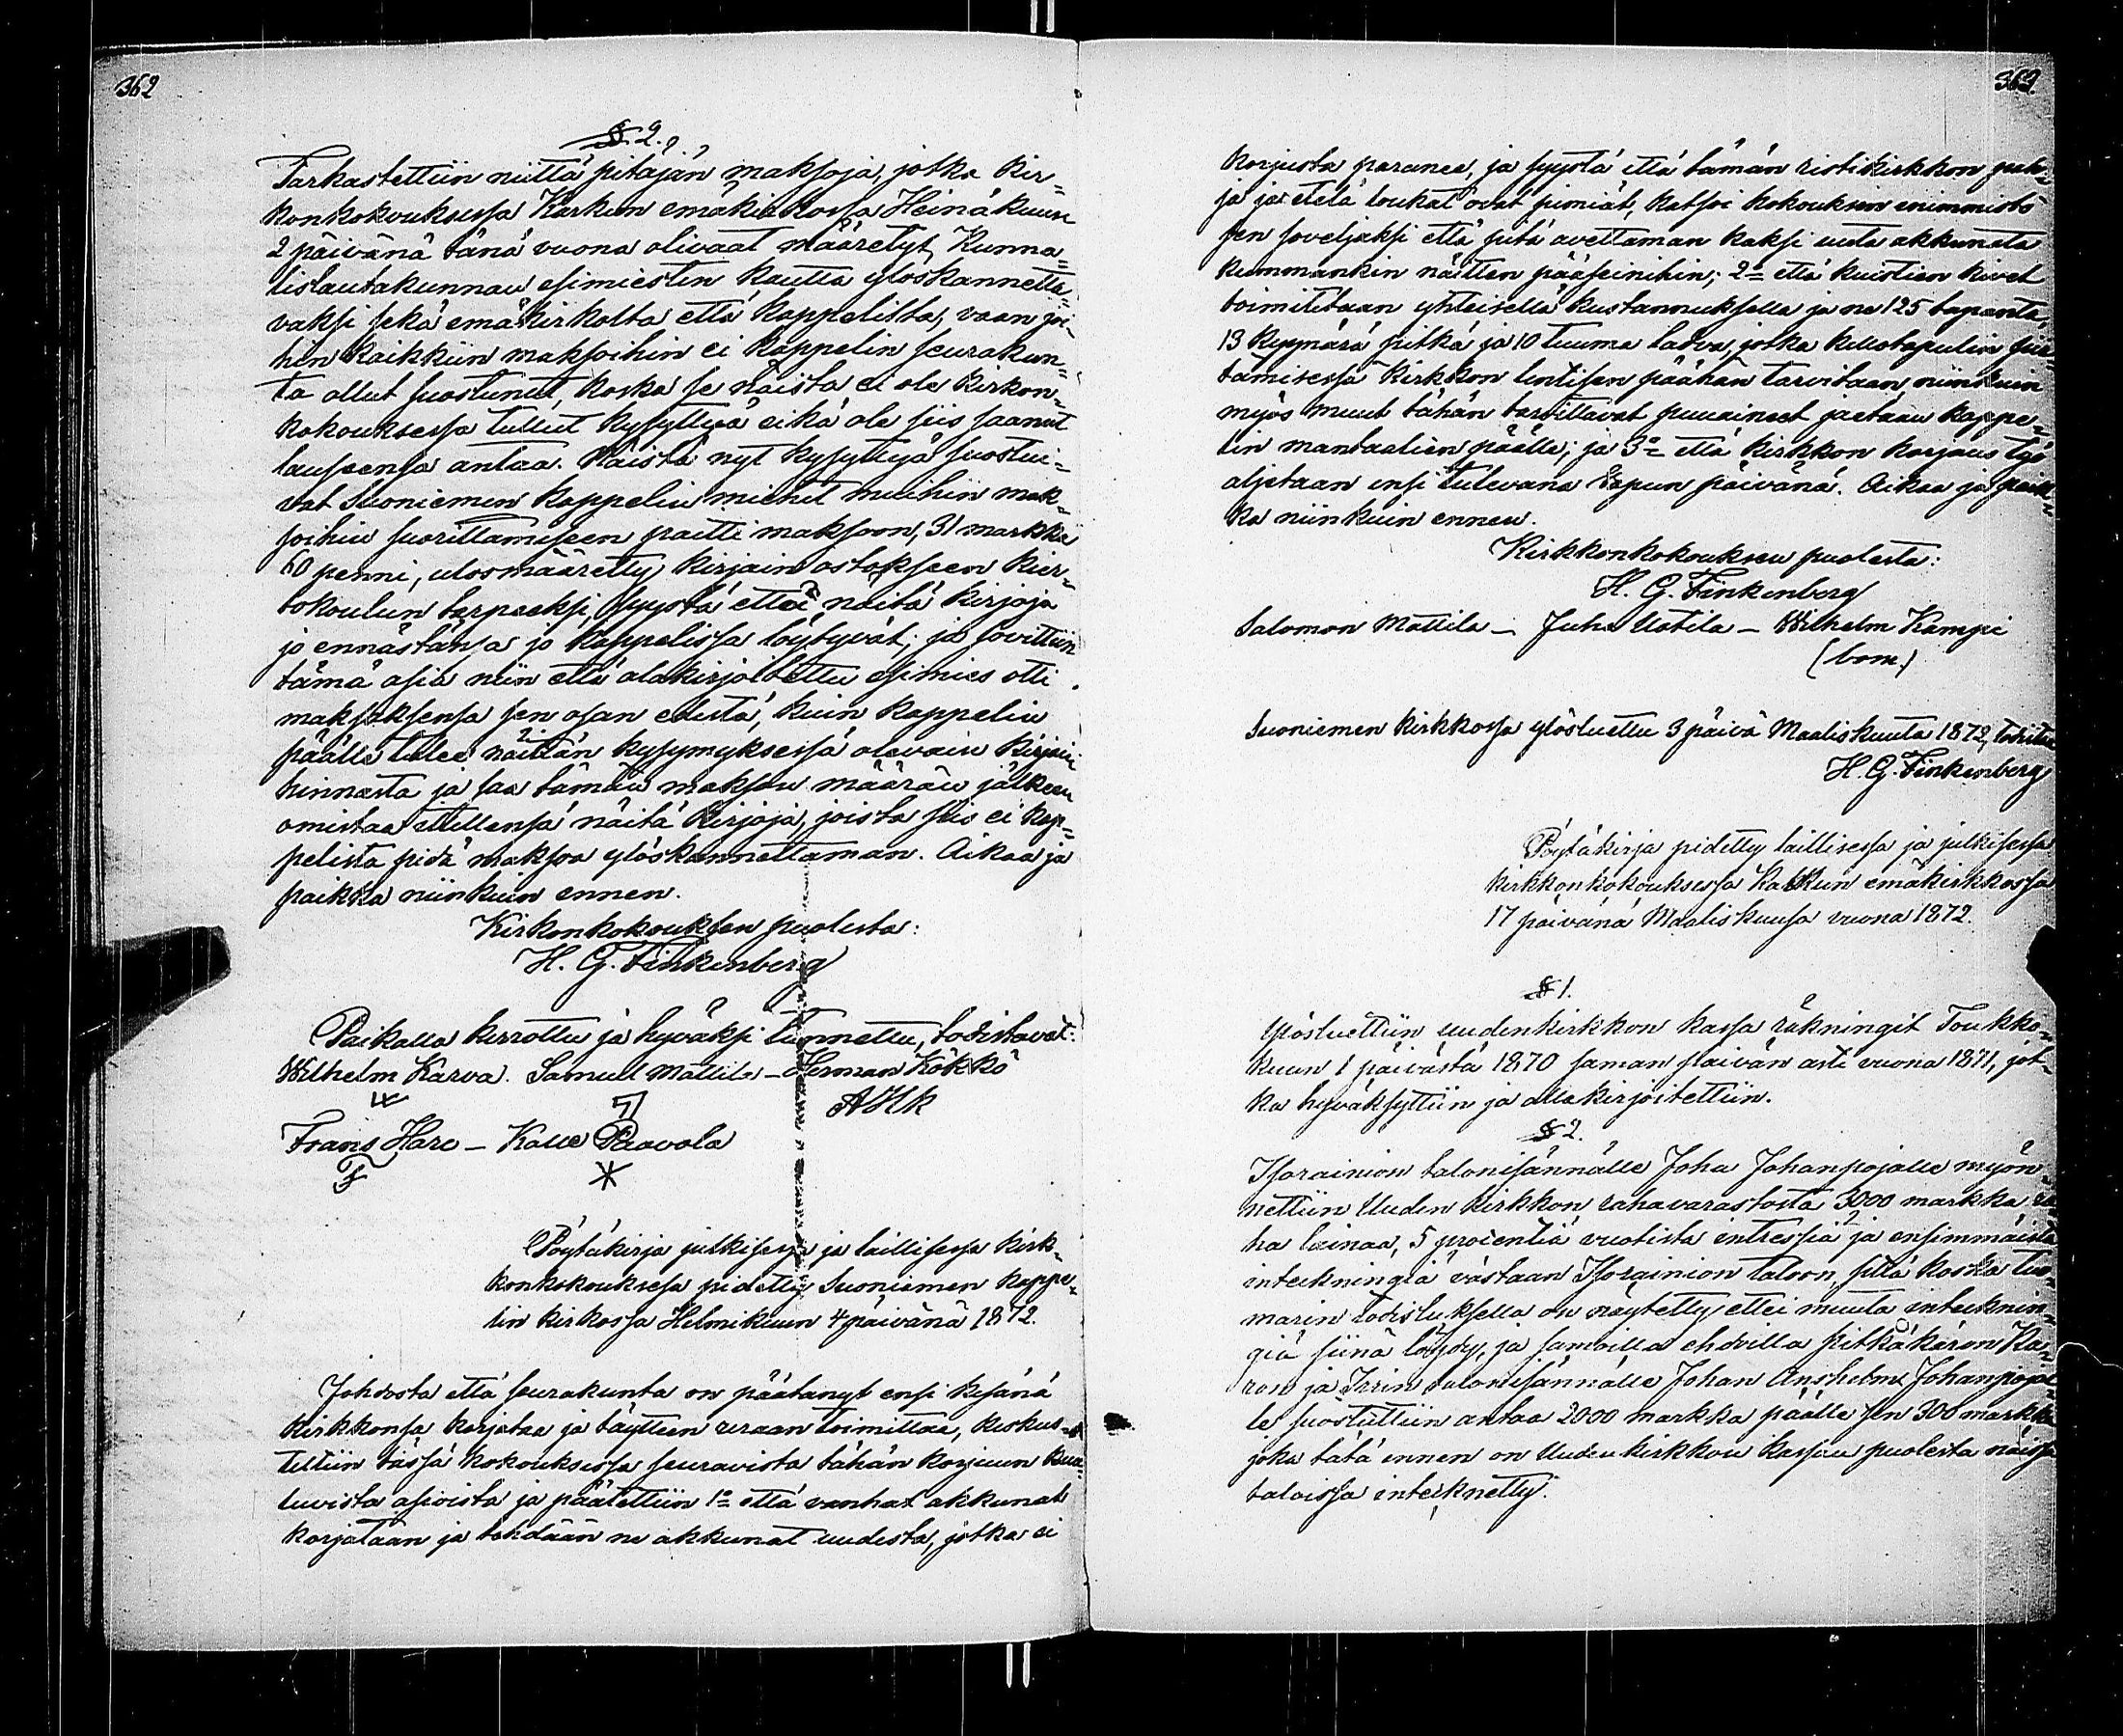 362
§ 2.
Tarkastettiin niittä pitäjän maksoja, jotka Kir-
konkokouksessa Karkun emäkirkossa Heinäkuun
2 päivänä tänä vuona olivaat määretyt, Kunna-
lislautakunnan esimiesten kautta yloskannetta-
vaksi sekä emäkirkolta että Kappelilta, vaan joi-
hin kaikkiin maksoihin ei Kappelin seurakun-
ta ollut suostunut, koska se näistä ei ole kirkon-
kokouksessa tullut kysyttyä eikä ole siis saanut
lauseensa antaa. Näistä nyt kysyttyä suostui-
vat Suoniemen kappelin miehet muihin mak-
soihin suorittamiseen paitti maksoon, 31 markka
60 penni, ulosmääretty kirjain ostokseen Kier-
tokoulun tarpeeksi, syystä ettei näitä kirjoja
jo ennästänsa jo Kappelissa löytyvät; ja sovittiin
tämä asia niin että alakirjoitettu esimies otti
maksaksensa sen osan edestä, kuin Kappelin
päälle tulee näitän kysymyksessä olevain kirjain
hinnasta ja saa tämän maksun määrän jälkeen
omistaa itsellensä näitä kirjoja, joista siis ei kap-
pelista pidä maksoa ylöskannettaman. Aikaa ja
paikka niinkuin ennen.
Kirkonkokouksen puolesta:
H. G. Finkenberg
Paikalla kerrottu ja hyväksi tunnettu, todistavat:
Wilhelm Karva. Samuel Mattila - Herman Kökkö
AHk
Frans Hare - Kalle Paavola
F
Pöytäkirja julkisessa ja laillisessa kirk-
konkokouksessa pidetty Suoniemen kappe-
lin kirkossa Helmikuun 4 päivänä 1872.
Johdosta että seurakunta on päätänyt ensi kesänä
kirkkonsa korjataa ja täytteen uraan toimittaa, keskus-
teltiin tässä kokouksessa seuravista tähän korjuun kuu-
luvista asioista ja päätettiin 1:o että vanhat akkunat
korjataan ja tehdään ne akkunat uudesta, jotka ei
363.
korjusta paranee, ja syystä että tämän ristikirkkon poh-
ja ja etelä loukat ovat pimiät, katsoi kokouksen enimmistö
sen soveljaksi että pitä avettaman kaksi uuta akkunata
kummankin näitten pääseinihin; 2:o että kuistien kivet
toimitetaan yhteisellä kustannuksella ja ne 125 taparta,
13 kyynärä pitkä ja 10 tuuma latva, jotka kellotapulin siir-
tämisessä kirkkon lentisen päähän tarvitaan niinkuin
myös muut tähän tarvittavat puuaineet jaetaan kappe-
lin mantaalien päälle; ja 3:o että kirkkon korjaus työ
aljetaan ensi tulevana Vapun päivänä. Aikaa ja paik-
ka niinkuin ennen.
Kirkkonkokouksen puolesta:
H. G. Finkenberg
Salomon Mattila - Juha Uotila - Wilhelm Kamppi
(bom.)
Suoniemen kirkkossa ylösluettu 3 päivä Maaliskuuta 1872, todistaa
H. G. Finkenberg
Pöytäkirja pidetty laillisessa ja julkisessa
kirkkonkokouksessa Karkun emäkirkkossa
17 päivänä Maaliskuusa vuona 1872.
§ 1.
Ylösluettiin uudenkirkkon kassa räkningit Toukko-
kuun 1 päivästä 1870 saman päivän asti vuona 1871, jot-
ka hyväksyttiin ja allakirjoitettiin.
§ 2.
Isorainion talonisännälle Joha Johanpojalle myön-
nettiin Uuden kirkkon rahavarastosta 3000 markka ra-
ha lainaa, 5 procentiä vuotista intressiä ja ensimmäistä
inteckningiä västaan Isorainion taloon, sillä koska tuo-
marin todistuksella on näytetty ettei muuta inteknin-
giä siinä löydy, ja samoilla ehdoilla Pitkäkäron Ka-
ron ja Irrin talonisännälle Johan Anshelm Johanpojal-
le suostuttiin antaa 2000 markka päälle sen 300 markka
joka tätä ennen on Uuden kirkkon kassan puolesta näissä
taloissa inteknetty.